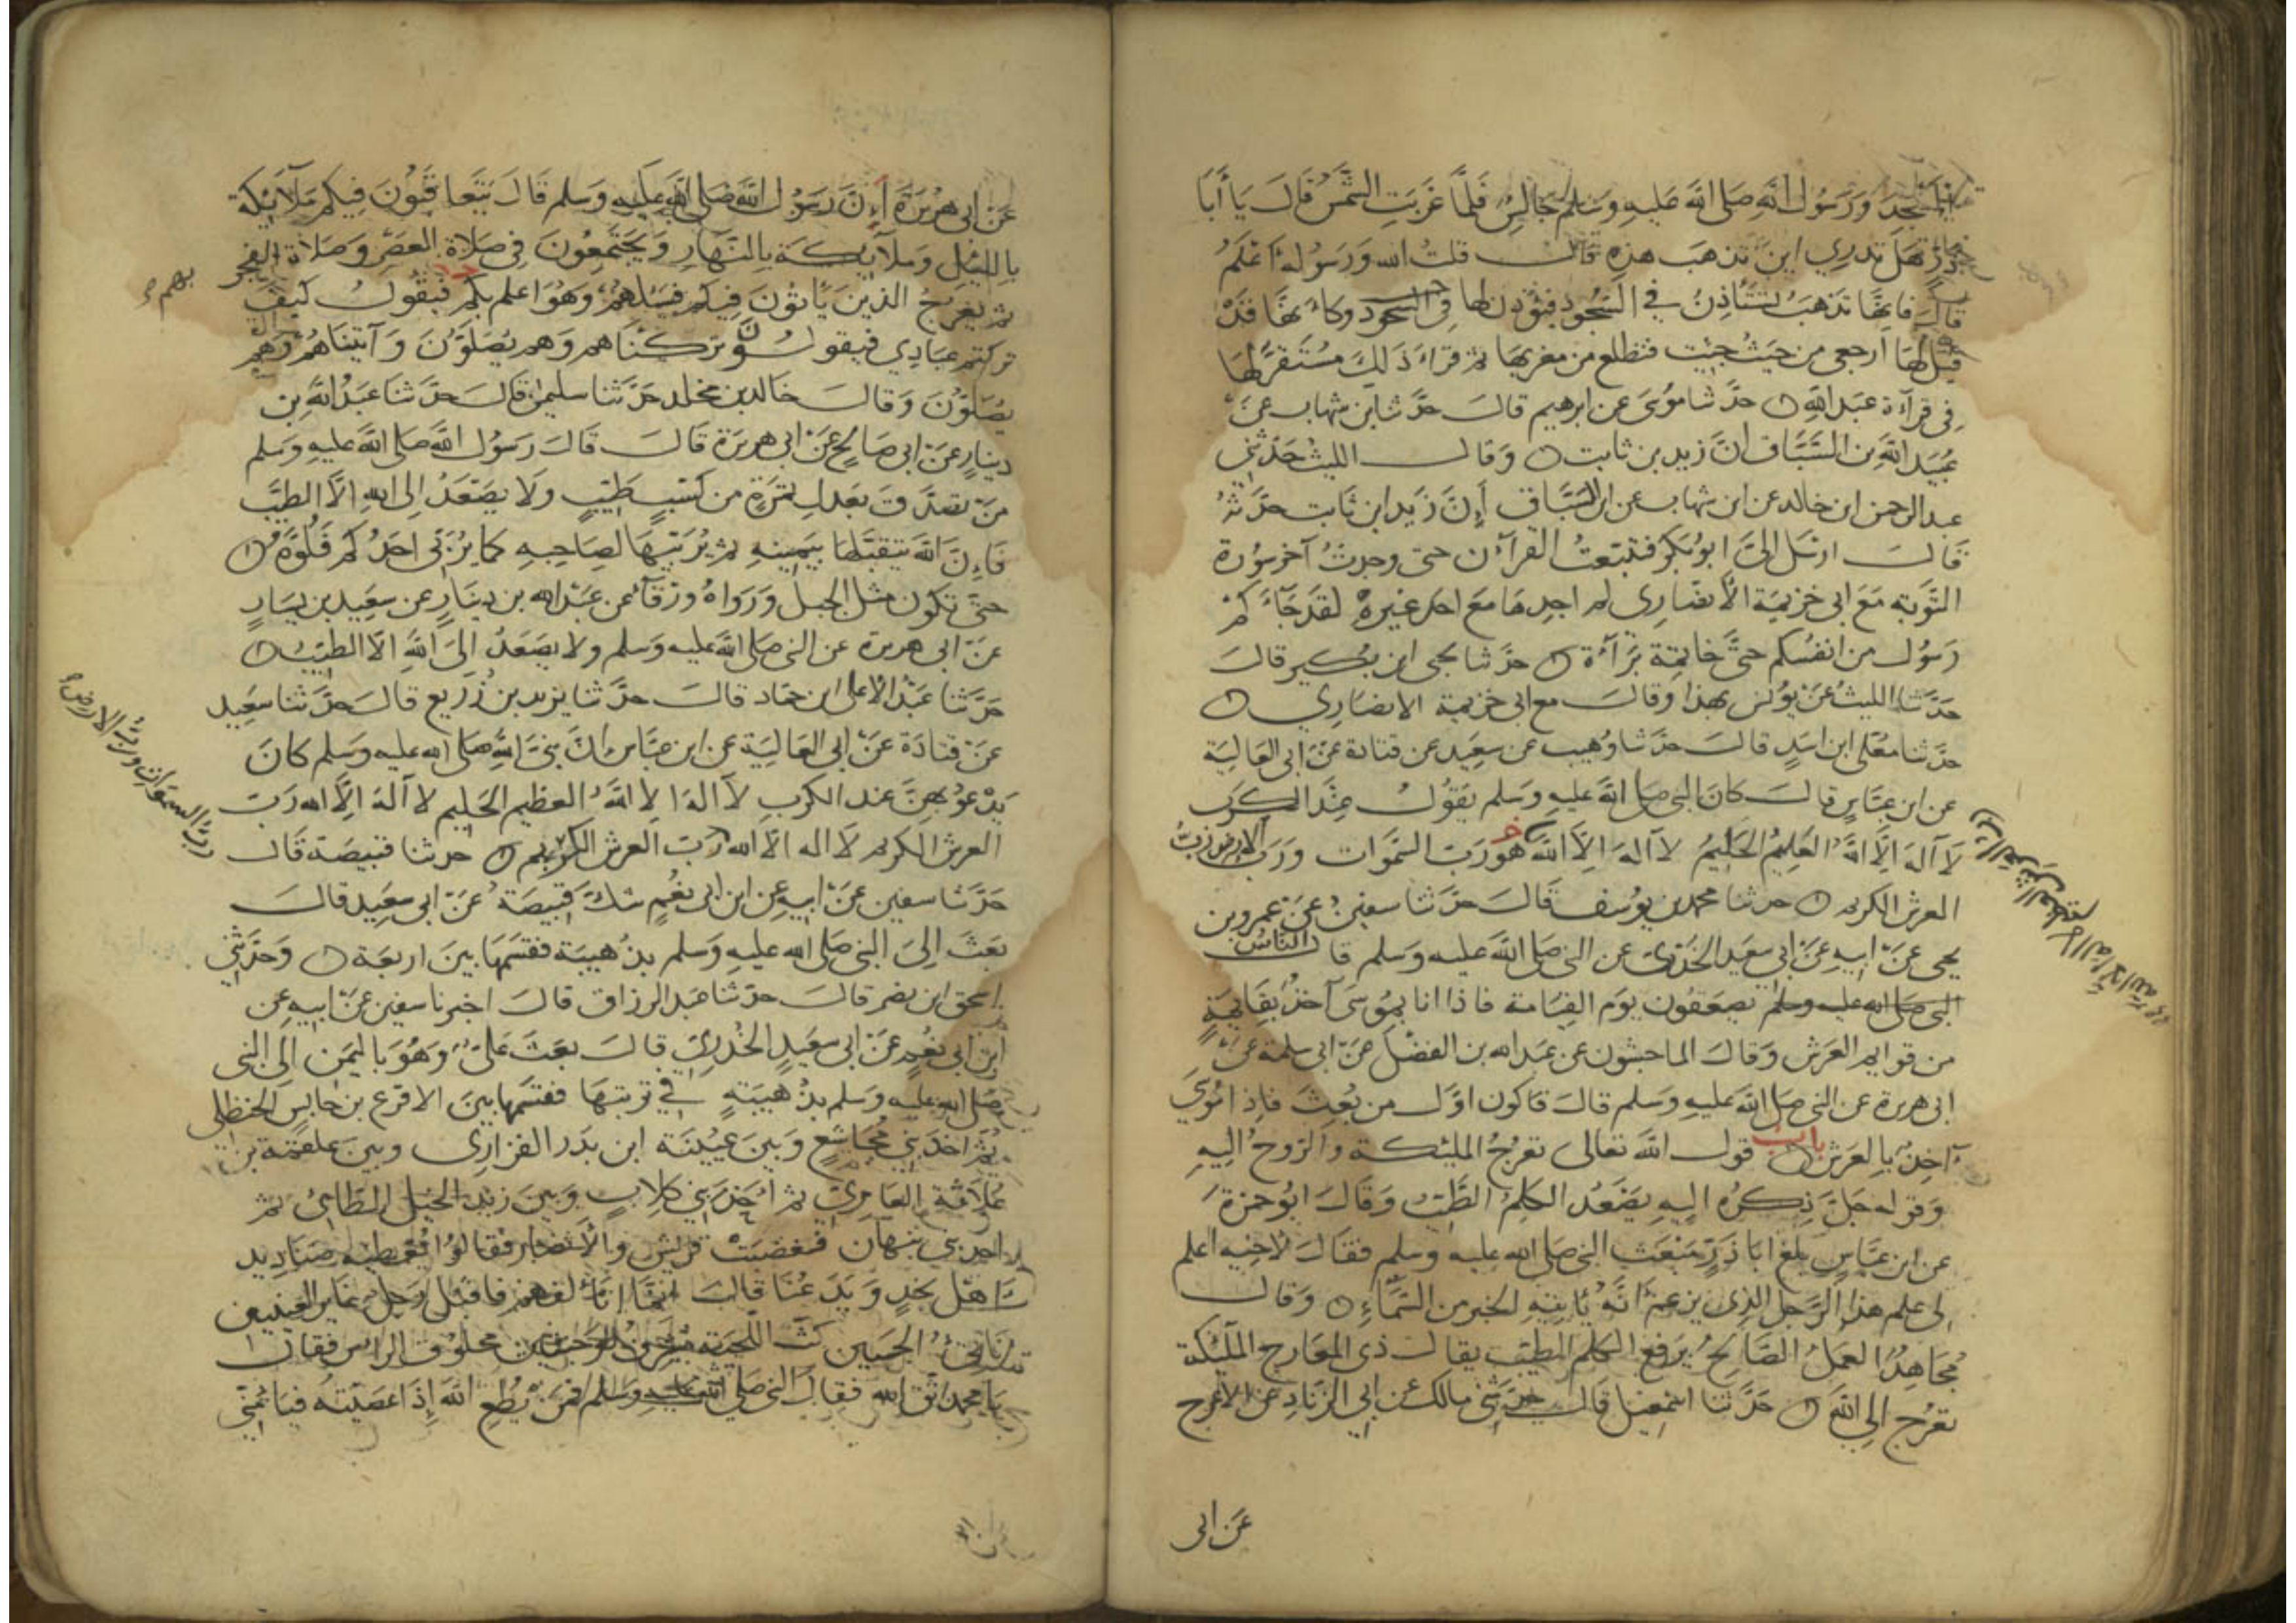 المسجد ورسول الله صلى الله عليه وسلم جالس فلما غربت الشمس قال يا أبا
ذر هل تدري اين تذهب هذه قال قلت الله ورسوله أعلم
قال فإنها تذهب تستأذن في السجود فيؤذن لها في السجود وكأنها قد
قيل لها ارجعي من حيث جيت فتطلع من مغربها ثم قراء ذلك مستقر لها
في قرآءة عبد الله حدثنا موسى عن ابرهيم قال حدثنا ابن شهاب عن
عبيد الله بن السباق ان زيد بن ثابت وقال الليث حدثني
عبد الرحمن ابن خالد عن ابن شهاب عن ابن السباق إن زيد ابن ثابت حدثه
قال ارسل الي ابو بكر فتبعت القرآن حتى وجدت آخر سورة
التوبة مع ابي خزيمة الأنصاري لم اجدها مع احد غيره لقد جآءكم
رسول من انفسكم حتى خاتمة برآءة حدثنا يحيى ابن بكير قال
حدثنا الليث عن يونس بهذا وقال مع ابي خزيمة الانصاري
حدثنا معلى ابن اسد قال حدثنا وهيب عن سعيد عن قتادة عن ابي العالية
عن ابن عباس قال كان النبي صلى الله عليه وسلم يقول عند الكرب
لا آله إلا الله العليم الحليم لا آله إلا الله هو رب السموات ورب الارض رب
العرش الكريم حدثنا محمد بن يوسف قال حدثنا سفين عن عمرو بن
يحيى عن ابيه عن ابي سعيد الخدري عن النبي صلى الله عليه وسلم قال الناس
النبي صلى الله عليه وسلم يصعقون يوم القيامة فاذا انا بموسى آخذ بقايمة
من قوايم العرش وقال الماجشون عن عبد الله بن الفضل عن ابي سلمة عن
ابي هريرة عن النبي صلى الله عليه وسلم قال فاكون اول من بعث فإذا موسى
آخذ بالعرش باب قول الله تعالى تعرج المليكة والروح اليه
وقوله جل ذكره إليه يصعد الكلم الطيب وقال ابو حمزة
عن ابن عباس بلغ ابا ذر مبعث النبي صلى الله عليه وسلم فقال لأخيه اعلم
لي علم هذا الرجل الذي يزعم أنه يأتيه الخبر من السماء وقال
مجاهد العمل الصالح يرفع الكلم الطيب يقال ذي المعارج الملئكة
تعرج الى الله حدثنا اسمعيل قال حدثني مالك عن ابي الزناد عن الاعرج
عن ابي
عن ابي هريرة أن رسول الله صلى الله عليه وسلم قال يتعاقبون فيكم ملآئكة
بالليل وملآئكة بالنهار ويجتمعون في صلاة العصر وصلاة الفجر
ثم يعرج الذين ياتون فيكم فيسئلهم وهو اعلم بكم فيقول كيف
بهم
تركتم عبادي فيقولون تركناهم وهم يصلون وآتيناهم وهم
يصلون وقال خالد بن مخلد حدثنا سليمن قال حدثنا عبد الله بن
دينار عن ابي صالح عن ابي هريرة قال قال رسول الله صلى الله عليه وسلم
من تصدق بعدل تمرة من كسب طيب ولا يصعد إلى الله إلا الطيب
فإن الله يتقبلها بيمينه ثم يربيها لصاحبه كما يربي احدكم فلوه
حتى تكون مثل الجبل ورواه ورقآء عن عبد الله بن دينار عن سعيد بن يسار
عن ابي هريرة عن النبي صلى الله عليه وسلم ولا يصعد إلى الله إلا الطيب
حدثنا عبد الاعلى ابن حماد قال حدثنا يزيد بن زريع قال حدثنا سعيد
عن قتادة عن ابي العالية عن ابن عباس ان نبي الله صلى الله عليه وسلم كان
يدعو بهن عند الكرب لا آله الا الله العظيم الحليم لا آله إلا الله رب
العرش الكريم لا اله الا الله رب العرش الكريم حدثنا قبيصة قال
رب السموات ورب الارض
حدثنا سفين عن ابيه عن ابن ابي نعم شك قبيصة عن ابي سعيد قال
بعث إلى النبي صلى الله عليه وسلم بذهيبة فقسمها بين اربعة وحدثني
اسحق ابن نصر قال حدثنا عبد الرزاق قال اخبرنا سفين عن ابيه عن
ابن ابي نعم عن ابي سعيد الخدري قال بعث علي وهو باليمن إلى النبي
صلى الله عليه وسلم بذهيبة في تربتها فقسمها بين الاقرع بن حابس الحنظلي
ثم احد بني مجاشع وبين عيينة ابن بدر الفزاري وبين علقمة بن
علاثة العامري ثم احد بني كلاب وبين زيد الخيل الطائي ثم
احد بني نبهان فغضبت قريش والأنصار فقالوا يعطيه صناديد
اهل نجد ويدعنا قال انما اتألفهم فاقبل رجل غاير العينين
ناتئ الجبين كث اللحية مشرف الوجنتين محلوق الراس فقال
يا محمد اتق الله فقال النبي صلى الله عليه وسلم فمن يطع الله إذا عصيته فيامنني